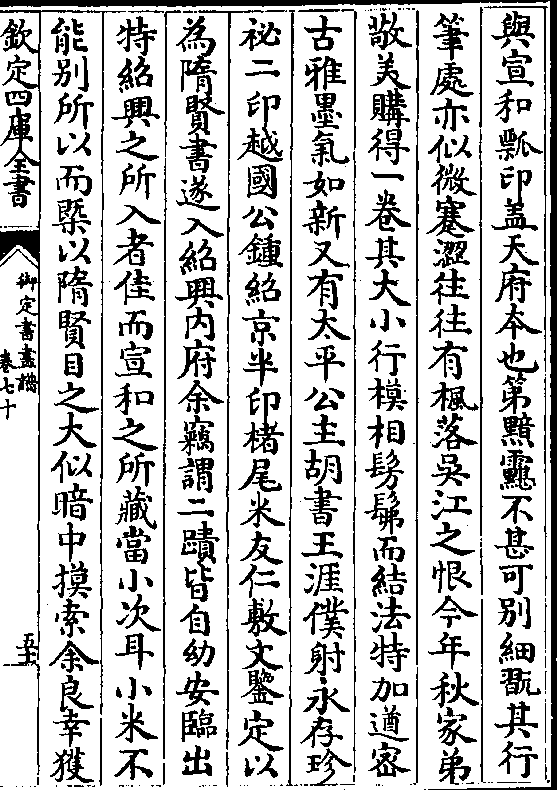 與宣和瓢印盖天府本也第黯靉不甚可别細翫其行
筆處亦似微蹇澀往往有楓落吳江之恨今年秋家弟
敬美購得一卷其大小行模相髣髴而結法特加遒宻
古雅墨氣如新又有太平公主胡書王涯僕射永存珍
祕二印越國公鍾紹京半印楮尾米友仁敷文鑒定以
為隋賢書遂入紹興内府余竊謂二蹟皆自幼安臨出
特紹興之所入者佳而宣和之所藏當小次耳小米不
能别所以而槩以隋賢目之大似暗中摸索余良幸獲
欽定四庫全書
御定書畫譜
卷七十